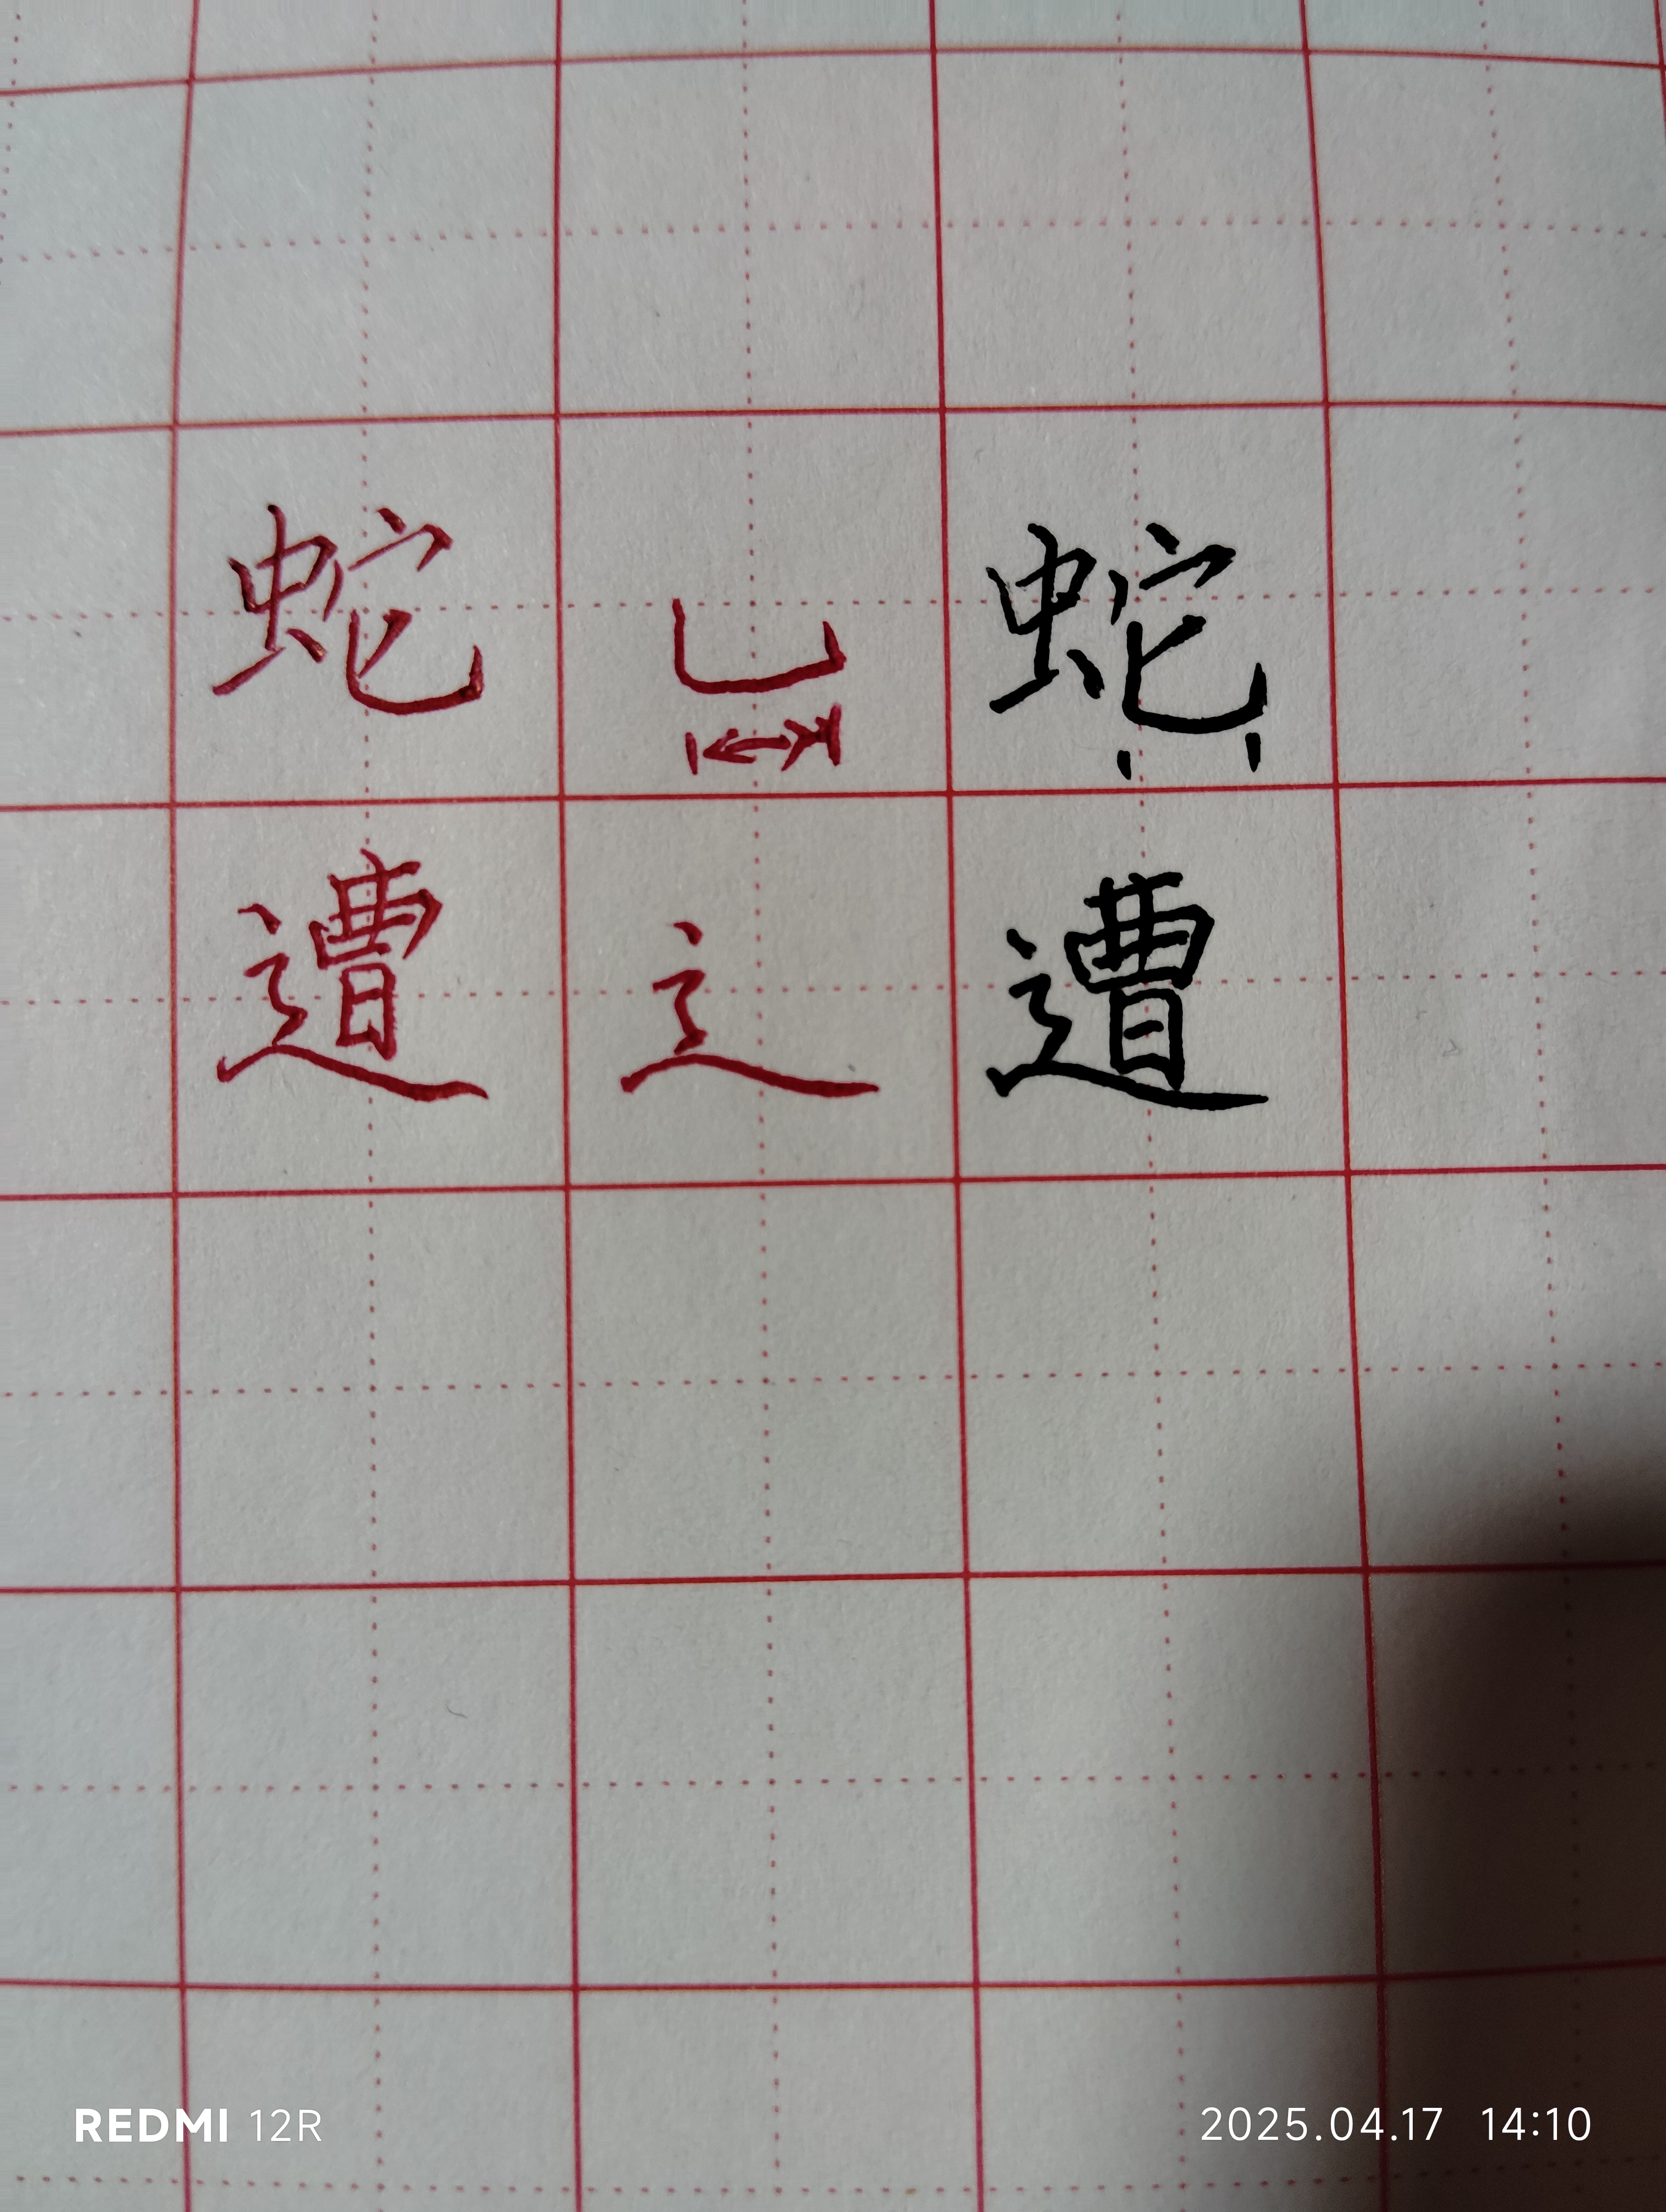 蛇 乚 蛇
遭 辶 遭
REDMI 12R
2025.04.17 14:10